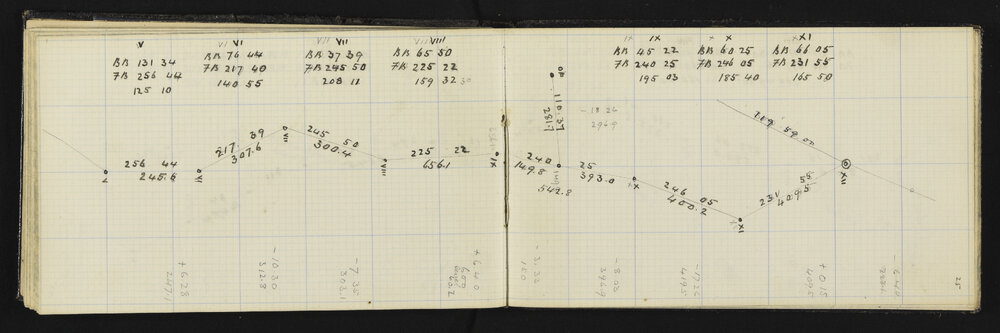 V
BB 131 34
FB 256 44
125 10
VI VI
BB 76 44
FB 217 40
140 55
VII VII
BB 37 39
FB 245 50
208 11
VII VIII
BB 65 50
FB 225 22
159 32 30
IX IX
BB 45 22
FB 240 25
195 03
X X
BB 60 25
FB 246 05
185 40
X XI
BB 66 05
FB 231 55
165 50
256 44
245.6
V
VI
217 39
307.6
VII
245 50
300.4
VIII
225 22
656.1
IX
110 37
281.7
-18 26
296.9
240 25
149.8
393.0
542.8
X
246 05
400.2
XI
231 55
409.5
119 59 00
XII
+ 6.28
247.1
- 10.30
312.8
- 7.35
303.1
+ 6.40
600
602
- 3.33
150
- 8.02
396.9
- 17.26
419.5
+ 0.15
409.5
- 6.40
25